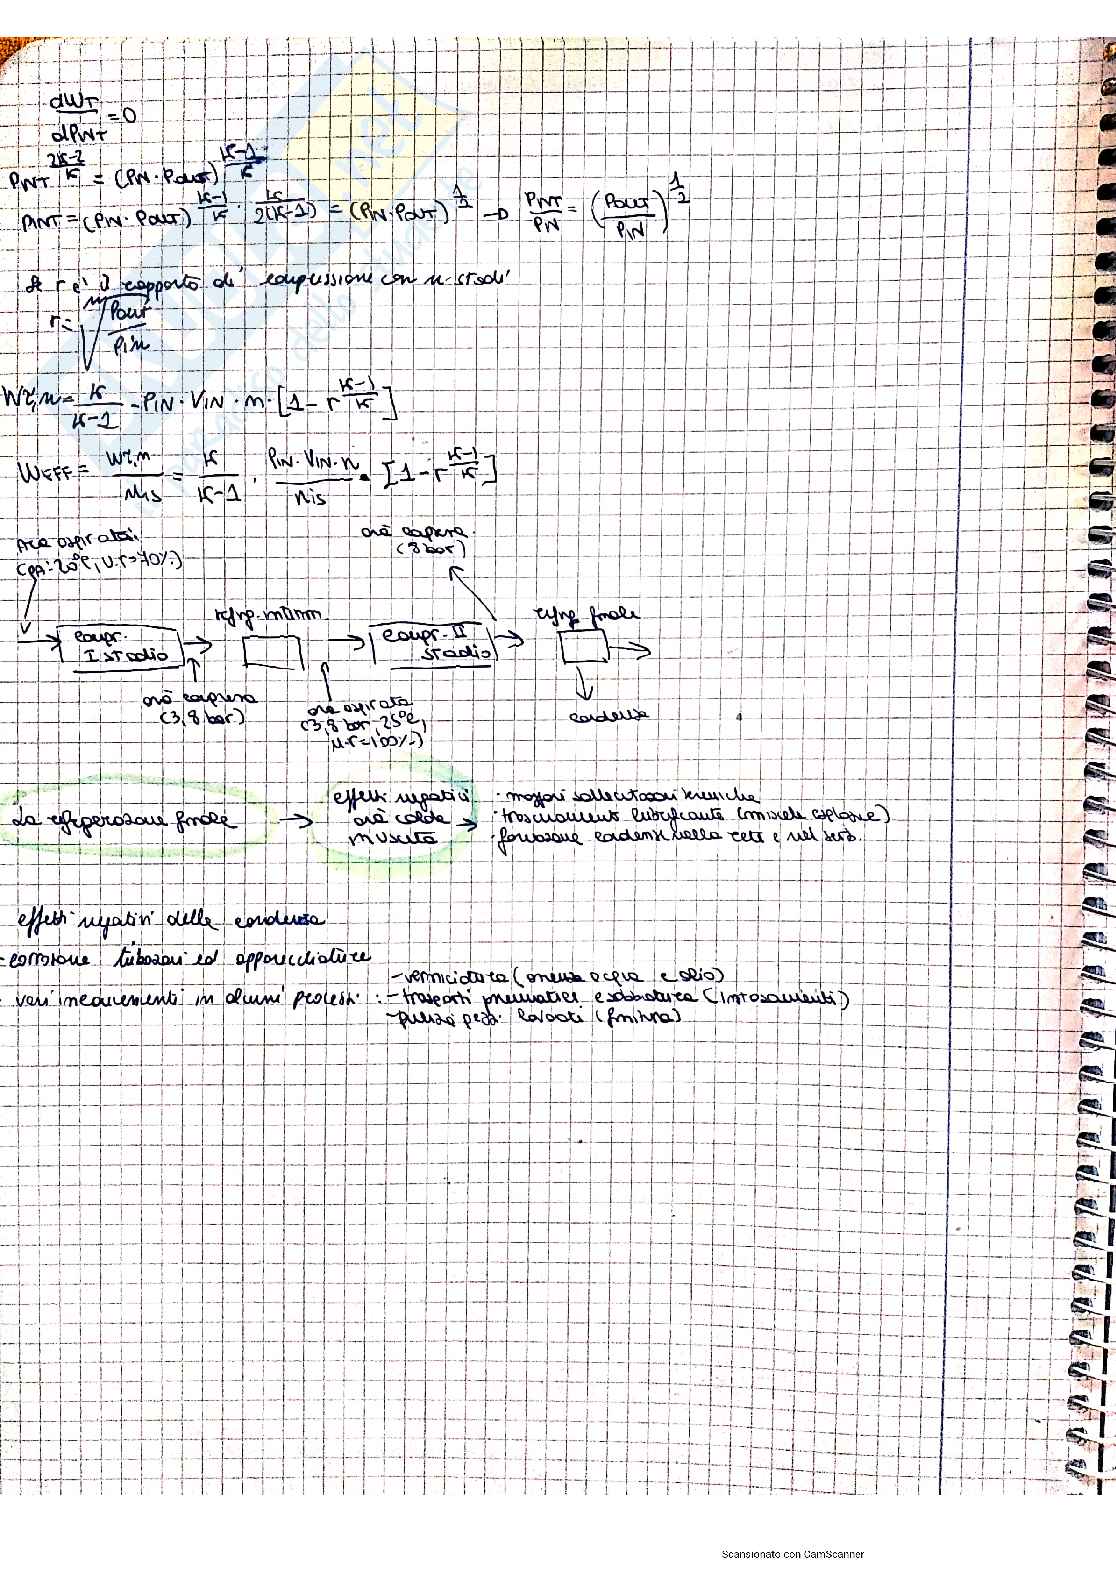 dWT
dPINT
= 0
PINT^(2k-2)/k = (PIN · POUT)^(k-1)/k
PINT = (PIN · POUT)^(k-1)/k · k/2(k-1) = (PIN · POUT)^1/2 → PINT/PIN = (POUT/PIN)^1/2
Se r è il rapporto di compressione con n stadi
r = n√(POUT/PIN)
k/(k-1) · PIN · VIN · n · [1 - r^(k-1)/k]
WEFF = k/(k-1) · PIN · VIN · n / nis · [1 - r^(k-1)/k]
aria compressa
(8 bar)
aspirata
20°C, U.r = 70%)
refrig. finale
compr.
I stadio
compr. II
stadio
aria compressa
(3,8 bar)
aria aspirata
(3,8 bar, 25°C,
u.r = 100%)
condensa
La refrigerazione finale → effetti negativi aria calda in uscita →
· maggiori sollecitazioni termiche
· trascinamento lubrificante (miscele esplosive)
· formazione condensa nella rete e nel serb.
effetti negativi della condensa
- corrosione tubazioni ed apparecchiature
- vari inconvenienti in alcuni processi :
- verniciatura (acqua e olio)
- trasporti pneumatici e sabbiatura (intasamenti)
- pulizia pezzi lavorati (finitura)
Scansionato con CamScanner